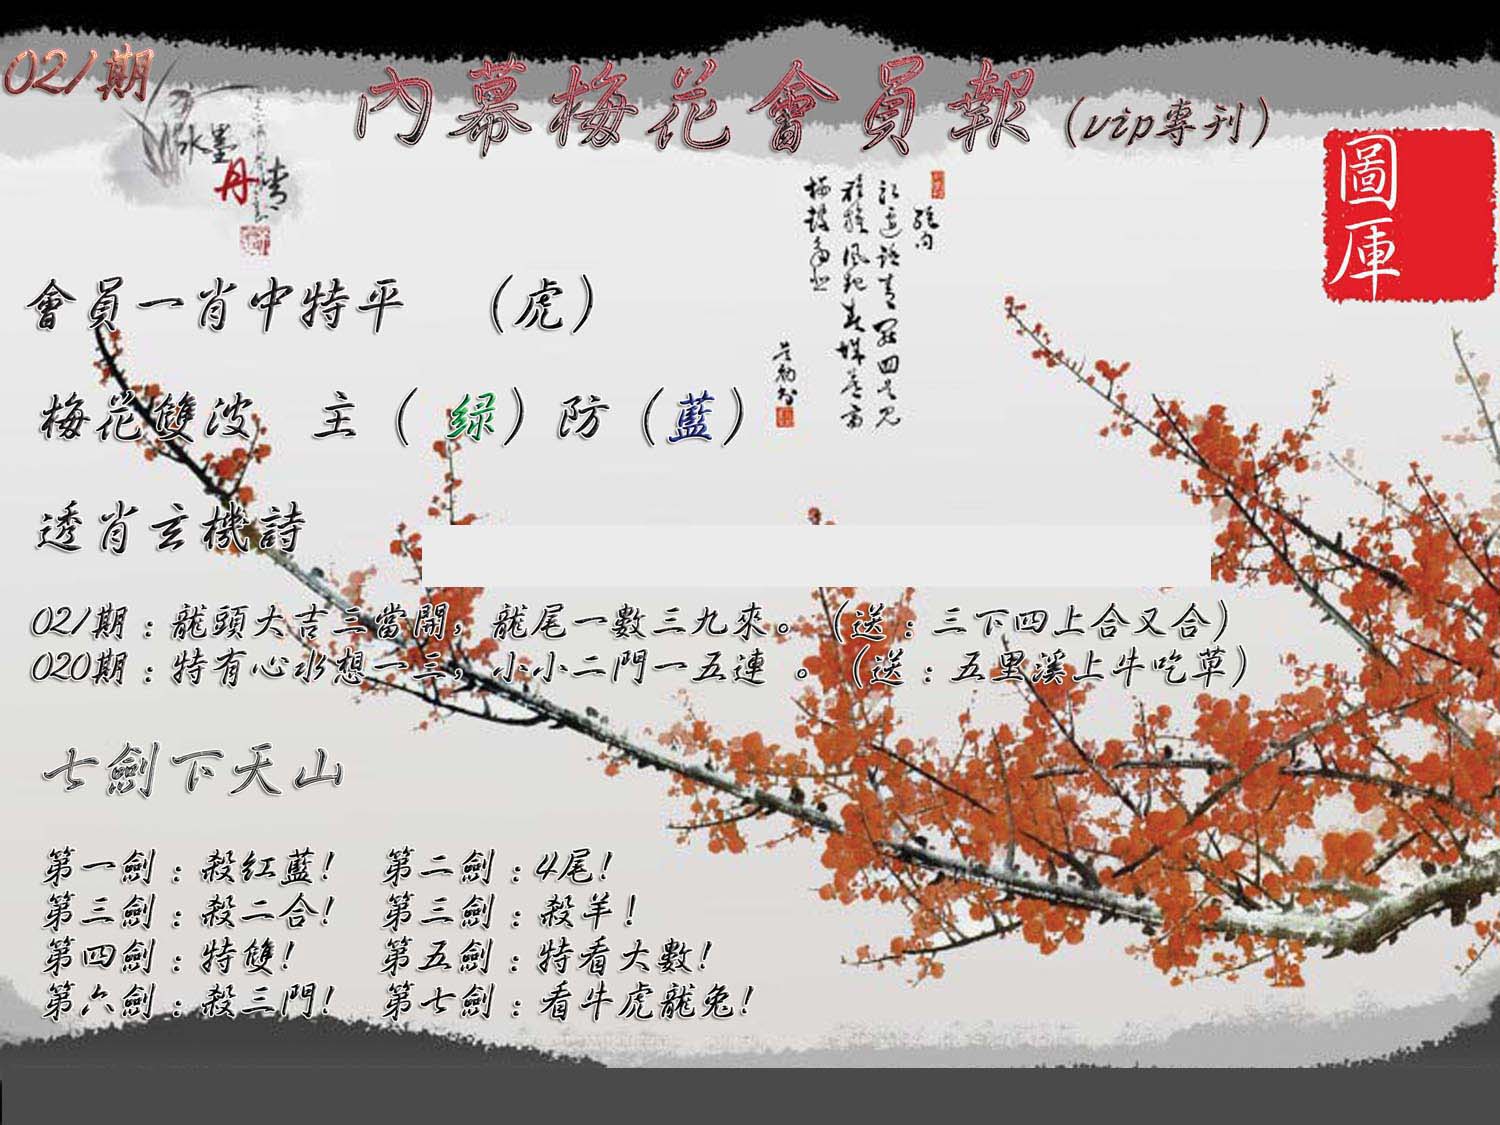 021期
內幕梅花會員報(vip專刊)
水墨
丹青
圖
庫
會員一肖中特平 (虎)
梅花雙波 主(綠)防(藍)
透肖玄機詩
021期:龍頭大吉三當開,龍尾一數三九來。(送:三下四上合又合)
020期:特有心水想一三,小小二門一五連 。(送:五里溪上牛吃草)
七劍下天山
第一劍:殺紅藍! 第二劍:4尾!
第三劍:殺二合! 第三劍:殺羊!
第四劍:特雙! 第五劍:特看大數!
第六劍:殺三門! 第七劍:看牛虎龍兔!